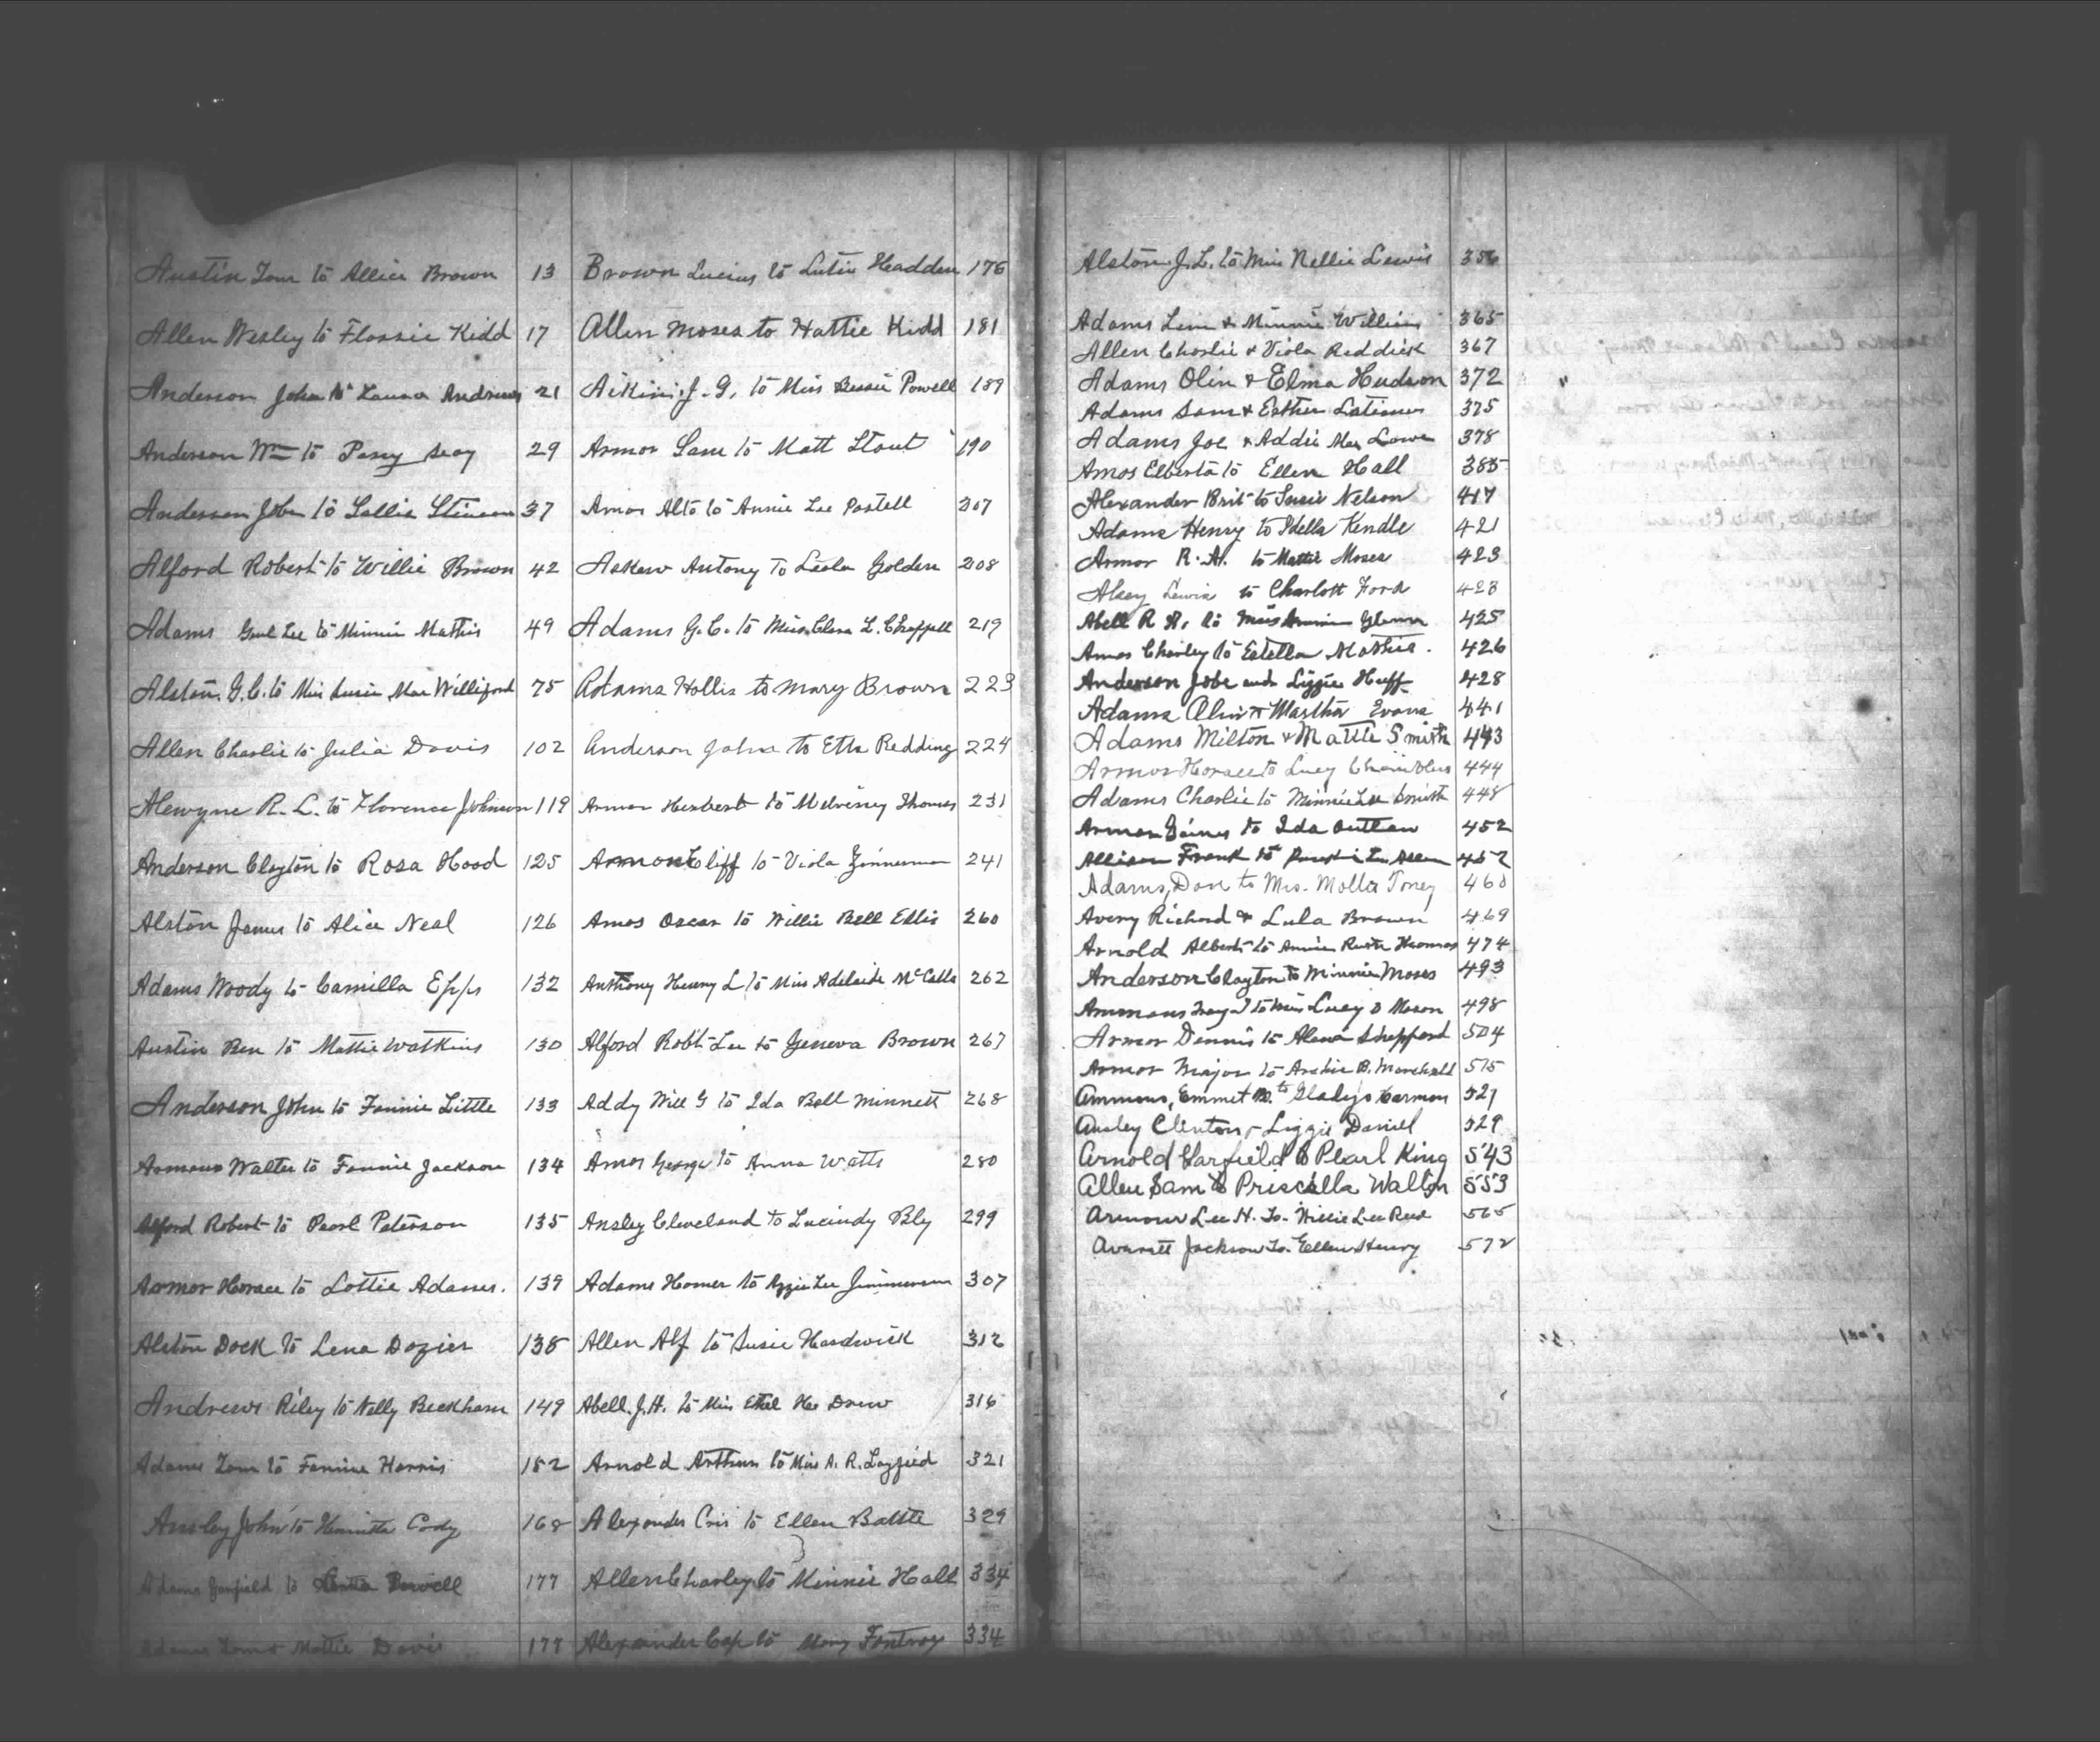 Austin Tom to Allice Brown 13
Allen Wesley to Flossie Kidd 17
Anderson John to Laura Andrews 21
Anderson Wm to Pansy Seay 29
Anderson Jobe to Sallie Stinson 37
Alford Robert to Willie Brown 42
Adams Lee to Minnie Mathis 49
Alston G. C. to Miss Susie Mae Williford 75
Allen Charlie to Julia Davis 102
Alewyne R. L. to Florence Johnson 119
Anderson Clayton to Rosa Hood 125
Alston James to Alice Neal 126
Adams Woody to Camilla Epps 132
Austin Ben to Mattie Watkins 130
Anderson John to Fannie Little 133
Walter to Fannie Jackson 134
Alford Robert to Pearl Peterson 135
Armor Horace to Lottie Adams. 139
Alston Dock to Lena Dozier 138
Andrews Riley to Nelly Beckham 149
Adams Tom to Fannie Harris 152
Ansley John to Henrietta Cody 168
Adams Garfield to Powell 177
Adams Mattie Davis 177
Brown Lucius to Lutie Hadden 176
Allen Moses to Hattie Kidd 181
J. G. to Miss Bessie Powell 189
Armor Sam to Matt Stout 190
Amos Alto to Annie Lee Postell 207
Askew Antony To Leola Golden 208
Adams G. C. to Miss Clara L. Chappell 219
Adams Hollis to Mary Brown 223
Anderson John to Etta Redding 224
Armor Herbert to Thomas 231
Armor Cliff to Viola Zinnerman 241
Amos Oscar to Willie Bell Ellis 260
Anthony Henry L to Miss Adelaide McCalla 262
Alford Robt Lee to Geneva Brown 267
Addy Will G to Ida Bell Minnett 268
Amos George to Anna Watts 280
Ansley Cleveland to Lucindy Bly 299
Adams Homer to Ozzie Lee Jimmerson 307
Allen Alf to Susie Hardwick 312
Abell J. H. to Miss Ethel Drew 316
Arnold Arthur to Miss A. R. 321
Alexander Cris to Ellen Battle 329
Allen Charley to Minnie Hall 334
Alexander Cap to Mary 334
Alston J. L. to Miss Nellie Lewis 356
Adams Lem & Minnie Williams 365
Allen Charlie & Viola Reddick 367
Adams Olin & Elma Hudson 372
Adams Sam & Esther Latimer 375
Adams Joe & Addie Mae Lowe 378
Amos Elberta to Ellen Hall 385
Alexander Brit to Susie Nelson 417
Adams Henry to Idella Kendle 421
Armor R. H. to Mattie Moses 423
Lewis to Charlott Ford 423
Abell R. H. to Miss Glenn 425
Amos Charley to Estella Mathis. 426
Anderson Jobe and Lizzie Huff 428
Adams & Martha Evans 441
Adams Milton & Mattie Smith 443
Armor Horace to Lucy Chambless 444
Adams Charlie to Minnie Lee Smith 448
Armor Gaines to Ida Outlaw 452
Allison Frank to Allen 457
Adams, Don to Mrs. Mollie Toney 460
Avery Richard & Lula Brown 469
Arnold Albert to Annie Ruth Thomas 474
Anderson Clayton to Minnie Moses 493
Ammons to Miss Lucy D Mason 498
Armor Dennis to Alena Sheppard 504
Armor Major to Archie B. Marshall 515
Ammons, Emmet M. to Gladys Carmon 521
Ansley Clinton - Lizzie Daniel 529
Arnold Garfield to Pearl King 543
Allen Sam to Priscilla Walton 553
Armour Lee H. To. Willie Lee Reid 565
Averett Jackson To. Ellen Henry 572